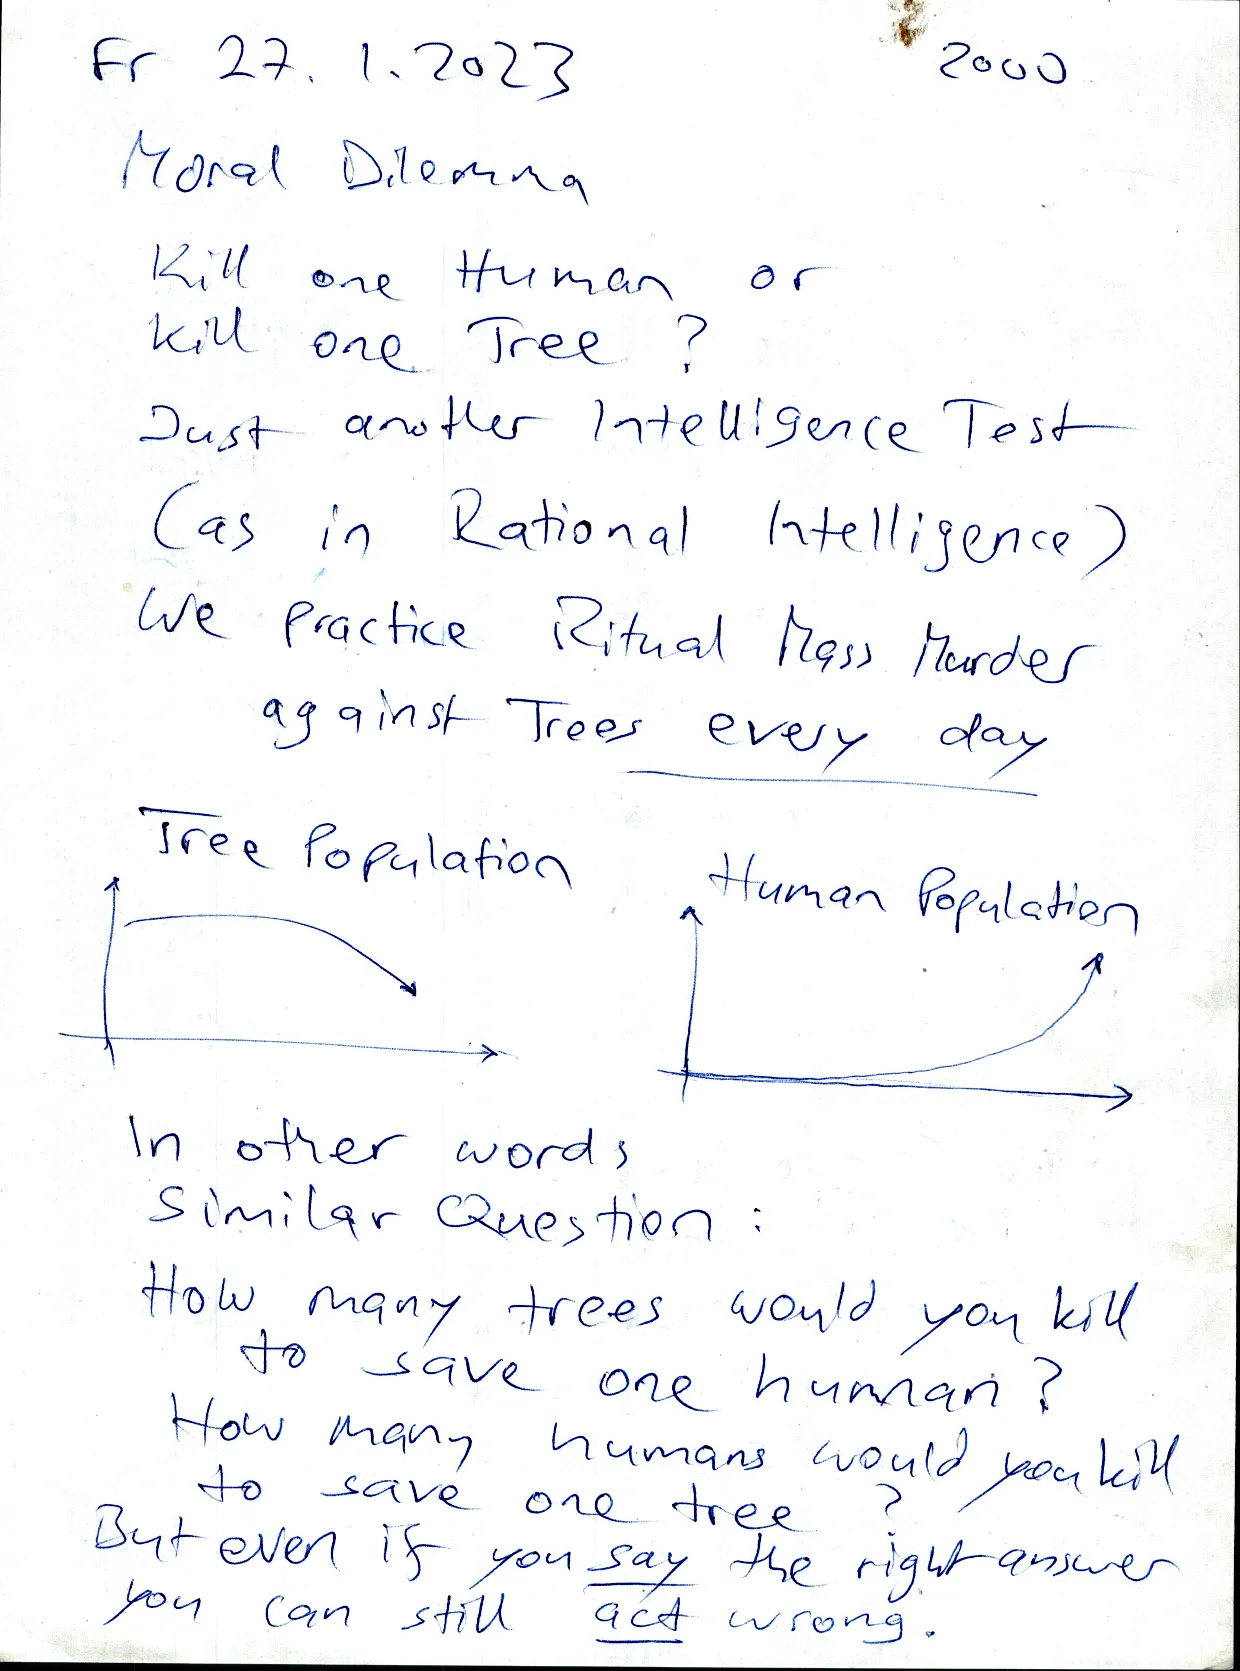 Fr 27. 1. 2023 2000
Moral Dilemma
Kill one Human or
kill one Tree ?
Just another Intelligence Test
(as in Rational Intelligence)
We practice Ritual Mass Murder
against Trees every day
Tree Population
Human Population
In other words
Similar Question :
How many trees would you kill
to save one human ?
How many humans would you kill
to save one tree ?
But even if you say the right answer
you can still act wrong.